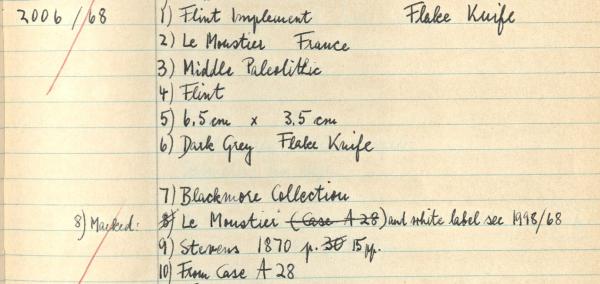 2006/68 1) Flint Implement Flake Knife
2) Le Moustier France
3) Middle Paleolithic
4) Flint
5) 6.5 cm x 3.5 cm
6) Dark Grey Flake Knife
7) Blackmore Collection
8) Marked: 8) Le Moustier (Case A 28) and white label see 1998/68
9) Stevens 1870 p. 36 15 pp.
10) From Case A 28